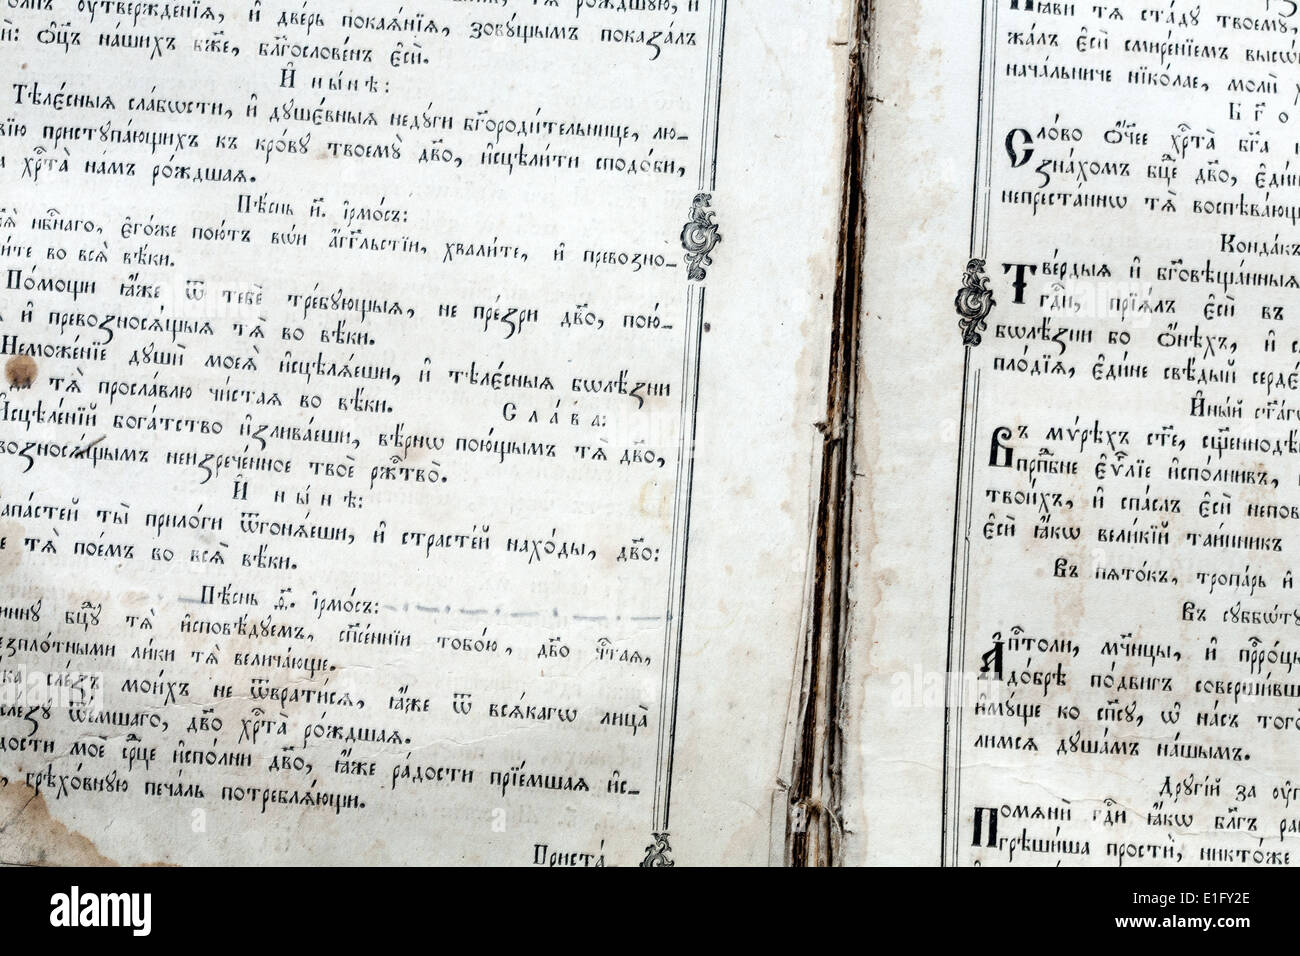 оутверждє́нїѧ, и҆ две́рь покаѧ́нїѧ, зовꙋ́щымъ показа́лъ
ѻ҆ц҃ъ на́шихъ бж҃е, бл҃гослове́нъ є҆сѝ.
И҆ ны́нѣ:
Тѣлє́сныѧ сла́бѡсти, и҆ дꙋшє́вныѧ недꙋ́ги бг҃ороди́тельнице, лю-
приступа́ющихъ къ кро́вꙋ твоемꙋ̀ дв҃о, и҆сцѣли́ти сподо́би,
хрⷭ҇та̀ на́мъ ро́ждшаѧ.
Пѣ́снь и҃. І҆рмо́съ:
нбⷭ҇наго, є҆го́же пою́тъ во́и а҆́гг҃льстїи, хвали́те, и҆ превозно-
и́те во всѧ̑ вѣ́ки.
По́мощи ꙗ҆́же ѿ тебѐ тре́бꙋющыѧ, не пре́зри дв҃о, пою́-
и҆ превозносѧ́щыѧ тѧ̀ во вѣ́ки.
Неможе́нїе дꙋшѝ моеѧ̀ и҆сцѣлѧ́еши, и҆ тѣлє́сныѧ бѡлѣ̑зни
да тѧ̀ просла́влю чи́стаѧ во вѣ́ки. Сла́ва:
И҆сцѣле́нїй бога́тство и҆злива́еши, вѣ́рнѡ пою́щымъ тѧ̀ дв҃о,
возносѧ́щымъ неизрече́нное твоѐ ржⷭ҇тво̀.
И҆ ны́нѣ:
напа́стей ты̀ прило́ги ѿгонѧ́еши, и҆ страсте́й нахо́ды, дв҃о:
тѧ̀ пое́мъ во всѧ̑ вѣ́ки.
Пѣ́снь ѳ҃. І҆рмо́съ:
бцⷣꙋ тѧ̀ и҆сповѣ́дꙋемъ, сп҃се́ннїи тобо́ю, дв҃о чⷭ҇таѧ,
безпло́тными ли́ки тѧ̀ велича́юще.
сле́зъ мои́хъ не ѿврати́сѧ, ꙗ҆́же ѿ всѧ́кагѡ лица̀
сле́зꙋ ѿе́мшаго, дв҃о хрⷭ҇та̀ ро́ждшаѧ.
моѐ срⷣце и҆спо́лни дв҃о, ꙗ҆́же ра́дости прїе́мшаѧ и҆с-
грѣхо́внꙋю печа́ль потреблѧ́ющи.
Приста̀
ста́дꙋ твоемꙋ̀,
є҆сѝ смире́нїемъ высѡ́
нача́льниче нїко́лае, молѝ
Сло́во ѻ҆́ч҃ее хрⷭ҇та̀ бг҃а
зна́хомъ бцⷣе дв҃о, є҆ди́н
непреста́ннѡ тѧ̀ воспѣва́ющ
Конда́къ
Тве́рдыѧ и҆ бг҃овѣща́нныѧ
гдⷭ҇и, прїѧ́лъ є҆сѝ въ
бѡлѣ́зни бо ѻ҆́нѣхъ, и҆
плодїѧ, є҆ди́не свѣ́дый серде́
Въ мѵ́рѣхъ ст҃е, сщ҃еннодѣ́
прпⷣбне є҆ѵⷢ҇лїе и҆спо́лнивъ,
твои́хъ, и҆ спа́слъ є҆сѝ непов
є҆сѝ ꙗ҆́кѡ вели́кїй таи́нникъ
Въ пѧто́къ, тропа́рь и҆
Въ сꙋббѡ́тꙋ
А҆пⷭ҇толи, мч҃нцы, и҆ прⷪ҇ро́цы
до́брѣ по́двигъ соверши́вш
и҆мꙋ́ще ко сп҃сꙋ, ѡ҆ на́съ того̀
ли́мсѧ дꙋша́мъ на́шымъ.
Дрꙋгі́й за оу҆п
Помѧнѝ гдⷭ҇и ꙗ҆́кѡ бл҃гъ ра
грѣ́шиша простѝ, никто́же
alamy
E1FY2E
www.alamy.com